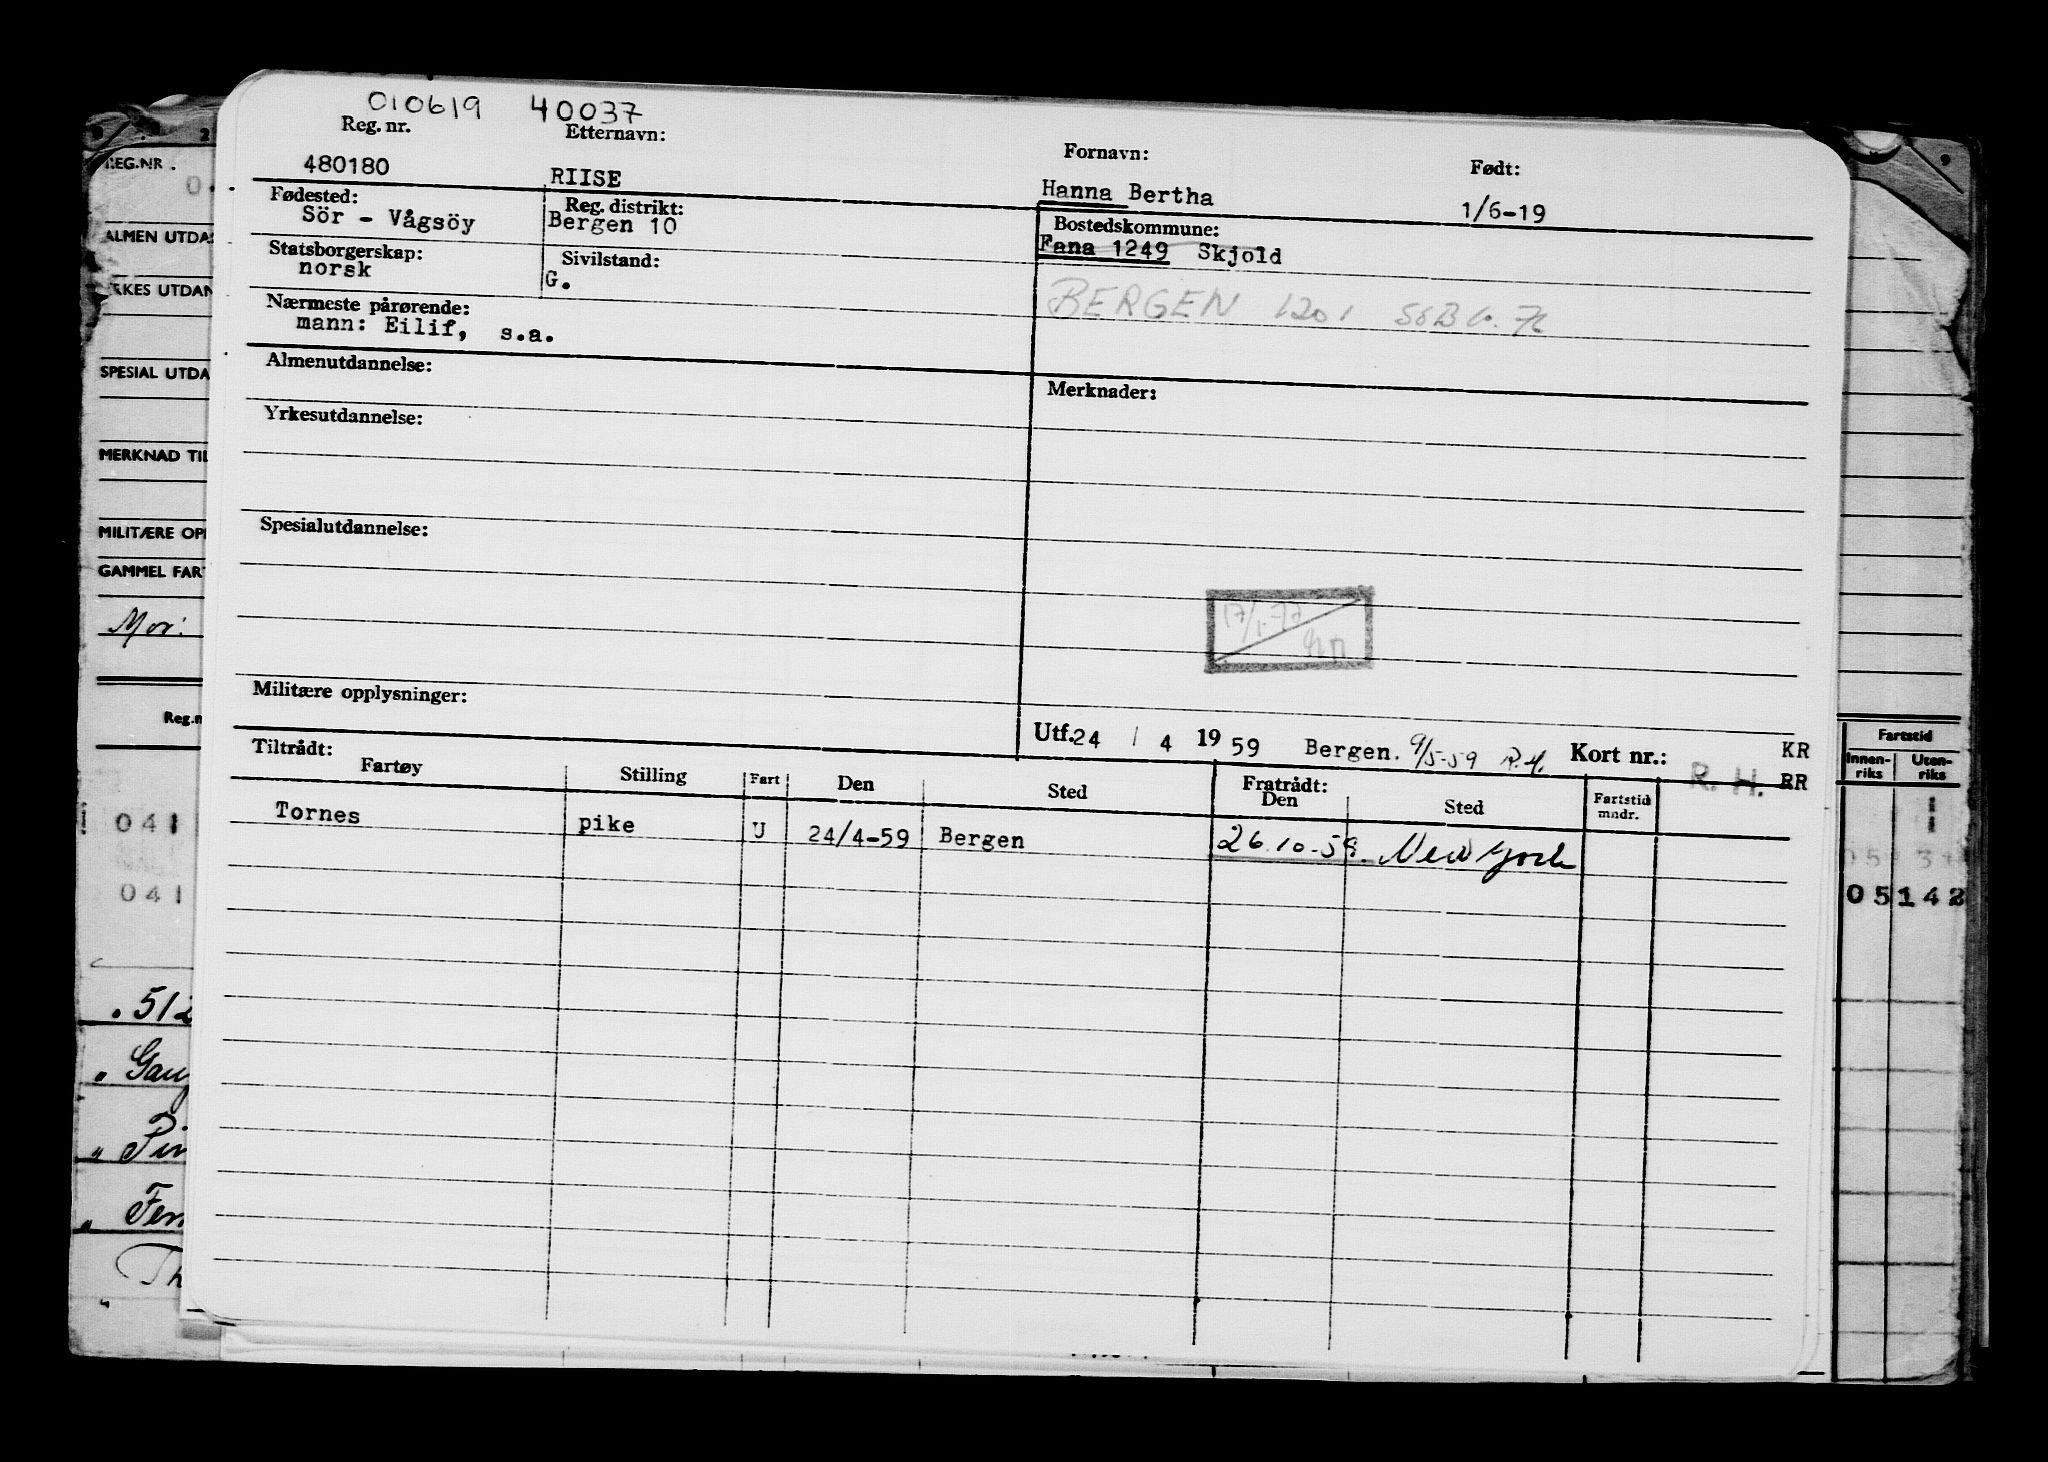 010619 40037
Reg. nr. Etternavn: Fornavn: Født:
480180 RIISE Hanna Bertha 1/6-19
Fødested: Reg. distrikt: Bostedskommune:
Sör - Vågsöy Bergen 10 Fana 1249 Skjold
Statsborgerskap: Sivilstand:
norsk G.
BERGEN 1201
Nærmeste pårørende:
mann: Eilif, s.a.
Almenutdannelse: Merknader:
Yrkesutdannelse:
Spesialutdannelse:
17/1-77
Militære opplysninger:
Utf. 24 / 4 1959 Bergen. 9/5-59 R.H. Kort nr.: KR
R. H. RR
Tiltrådt: Fratrådt:
Fartøy Stilling Fart Den Sted Den Sted Fartstid mndr.
Tornes pike U 24/4-59 Bergen 26.10-59. New York
REG.NR.
ALMEN UTDA
YRKES UTDAN
SPESIAL UTDA
MERKNAD TIL
MILITÆRE OPP
GAMMEL FART
Mor:
Reg.n
041
041
. 512
" Gau
" Pin
" Fer
Th
"
2
9
Fartstid
Innen-riks Uten-riks
05 3
05 142